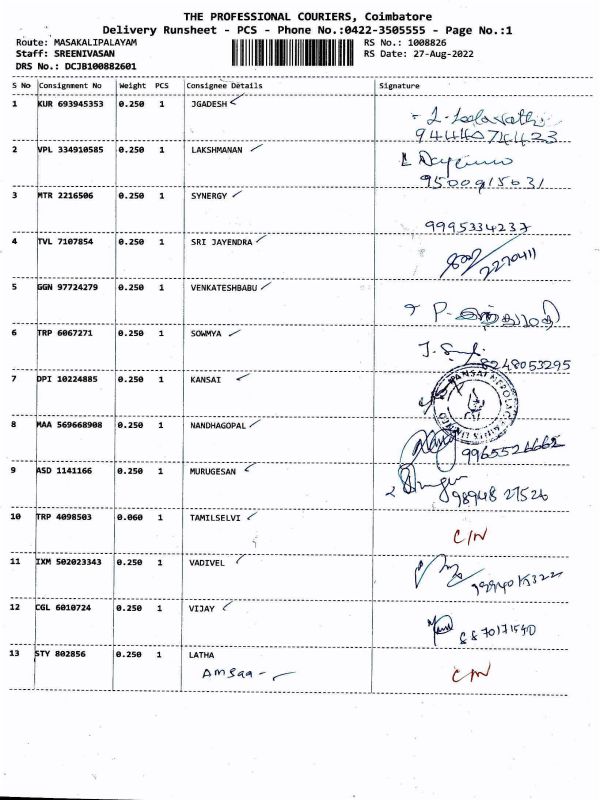 THE PROFESSIONAL COURIERS, Coimbatore
Delivery Runsheet - PCS - Phone No.:0422-3505555 - Page No.:1
Route: MASAKALIPALAYAM RS No.: 1008826
Staff: SREENIVASAN RS Date: 27-Aug-2022
DRS No.: DCJB100882601
S No Consignment No Weight PCS Consignee Details Signature
1 KUR 693945353 0.250 1 JGADESH
9444074423
2 VPL 334910585 0.250 1 LAKSHMANAN
9500915031
3 MTR 2216506 0.250 1 SYNERGY
9995334237
4 TVL 7107854 0.250 1 SRI JAYENDRA
2270411
5 GGN 97724279 0.250 1 VENKATESHBABU
P.
6 TRP 6067271 0.250 1 SOWMYA
8248053295
7 DPI 10224885 0.250 1 KANSAI
KANSAI NEROLAC PAINTS LIMITED
8 MAA 569668908 0.250 1 NANDHAGOPAL
9965526662
9 ASD 1141166 0.250 1 MURUGESAN
98948 27526
10 TRP 4098503 0.060 1 TAMILSELVI
C/N
11 IXM 502023343 0.250 1 VADIVEL
12 CGL 6010724 0.250 1 VIJAY
13 STY 802856 0.250 1 LATHA
Amsaa - C/N